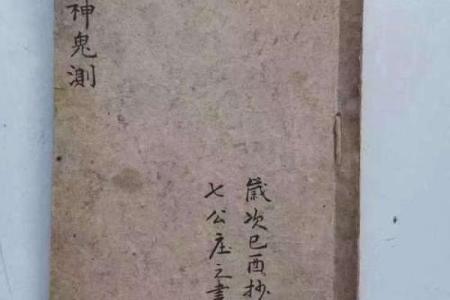 神鬼測
歲次己酉抄
七公庄之書